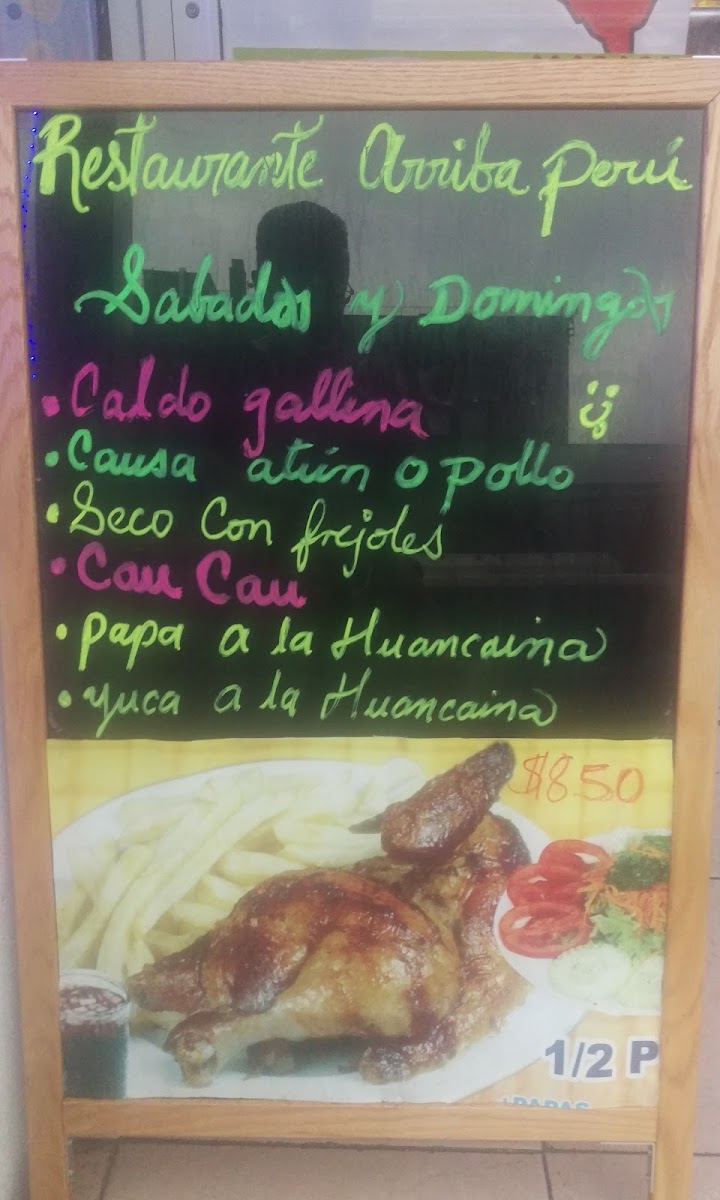 Restaurante Arriba Perú
Sabados y Domingos
• Caldo gallina
• Causa atún o pollo
• Seco Con frejoles
• Cau Cau
• papa a la Huancaina
• yuca a la Huancaina
$850
1/2 P
+PAPAS